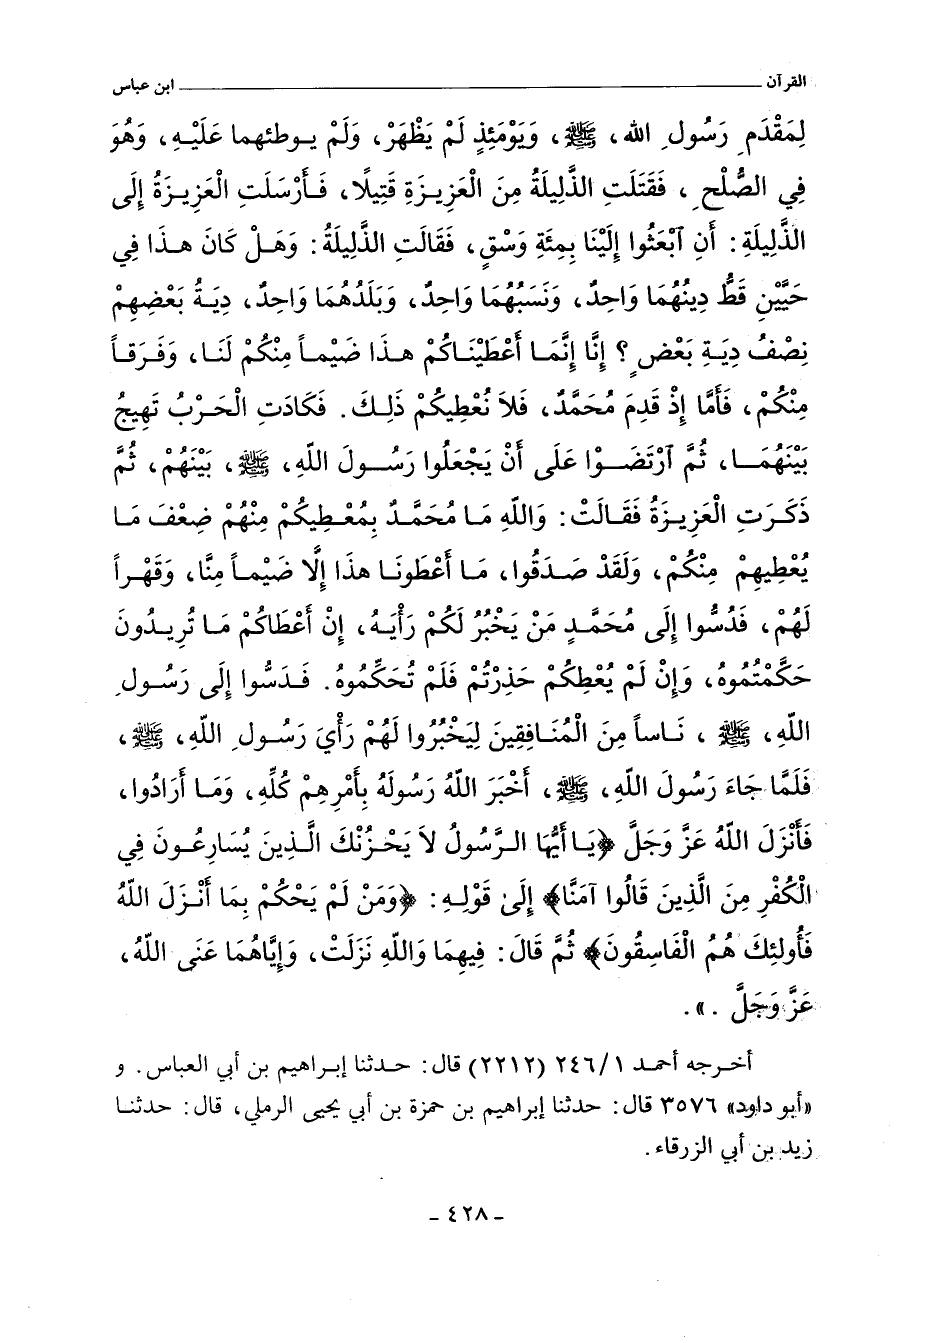 القرآن ــــــــــــــــــــ ابن عباس
لِمَقْدَمِ رَسُولِ الله، ﷺ، وَيَوْمَئِذٍ لَمْ يَظْهَرْ، وَلَمْ يوطئهما عَلَيْهِ، وَهُوَ
فِي الصُّلْحِ، فَقَتَلَتِ الذَّلِيلَةُ مِنَ الْعَزِيزَةِ قَتِيلًا، فَأَرْسَلَتِ الْعَزِيزَةُ إِلَى
الذَّلِيلَةِ: أَنِ آبْعَثُوا إِلَيْنَا بِمِئَةِ وَسْقٍ، فَقَالَتِ الذَّلِيلَةُ: وَهَلْ كَانَ هذَا فِي
حَيَّيْنِ قَطُّ دِينُهُمَا وَاحِدٌ، وَنَسَبُهُمَا وَاحِدٌ، وَبَلَدُهُمَا وَاحِدٌ، دِيَةُ بَعْضِهِمْ
نِصْفُ دِيَةِ بَعْضٍ؟ إِنَّا إِنَّمَا أَعْطَيْنَاكُمْ هذَا ضَيْماً مِنْكُمْ لَنَا، وَفَرَقاً
مِنْكُمْ، فَأَمَّا إِذْ قَدِمَ مُحَمَّدٌ، فَلاَ نُعْطِيكُمْ ذَلِكَ. فَكَادَتِ الْحَرْبُ تَهِيجُ
بَيْنَهُمَا، ثُمَّ آرْتَضَوْا عَلَى أَنْ يَجْعَلُوا رَسُولَ اللهِ، ﷺ، بَيْنَهُمْ، ثُمَّ
ذَكَرَتِ الْعَزِيزَةُ فَقَالَتْ: وَاللهِ مَا مُحَمَّدٌ بِمُعْطِيكُمْ مِنْهُمْ ضِعْفَ مَا
يُعْطِيهِمْ مِنْكُمْ، وَلَقَدْ صَدَقُوا، مَا أَعْطَونَا هذَا إِلَّا ضَيْماً مِنَّا، وَقَهْراً
لَهُمْ، فَدُسُّوا إِلَى مُحَمَّدٍ مَنْ يَخْبُرُ لَكُمْ رَأْيَهُ، إِنْ أَعْطَاكُمْ مَا تُرِيدُونَ
حَكَّمْتُمُوهُ، وَإِنْ لَمْ يُعْطِكُمْ حَذِرْتُمْ فَلَمْ تُحَكِّمُوهُ. فَدَسُّوا إِلَى رَسُولِ
اللهِ، ﷺ، نَاساً مِنَ الْمُنَافِقِينَ لِيَخْبُرُوا لَهُمْ رَأْيَ رَسُولِ اللهِ، ﷺ،
فَلَمَّا جَاءَ رَسُولَ اللهِ، ﷺ، أَخْبَرَ اللهُ رَسُولَهُ بِأَمْرِهِمْ كُلِّهِ، وَمَا أَرَادُوا،
فَأَنْزَلَ اللهُ عَزَّ وَجَلَّ ﴿يَا أَيُّهَا الرَّسُولُ لاَ يَحْزُنْكَ الَّذِينَ يُسَارِعُونَ فِي
الْكُفْرِ مِنَ الَّذِينَ قَالُوا آمَنَّا﴾ إِلَىٰ قَوْلِهِ: ﴿وَمَنْ لَمْ يَحْكُمْ بِمَا أَنْزَلَ اللهُ
فَأُولئِكَ هُمُ الْفَاسِقُونَ﴾ ثُمَّ قَالَ: فِيهِمَا وَاللهِ نَزَلَتْ، وَإِيَّاهُمَا عَنَى اللهُ،
عَزَّ وَجَلَّ .».
أخرجه أحمد ١/٢٤٦ (٢٢١٢) قال: حدثنا إبراهيم بن أبي العباس. و
«أبو داود» ٣٥٧٦ قال: حدثنا إبراهيم بن حمزة بن أبي يحيى الرملي، قال: حدثنا
زيد بن أبي الزرقاء.
- ٤٢٨ -